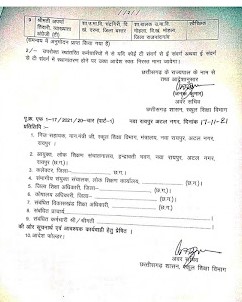 // 2 //
3 श्रीमती आरती तिवारी, व्याख्याता अंग्रेजी (टी)
(समन्वय में अनुमोदन प्राप्त किया गया है)
2/- उपरोक्त स्थानांतरित कर्मचारियों में से यदि कोई टी संवर्ग से ई संवर्ग अथवा ई संवर्ग
से टी संवर्ग में स्थानांतरण होने पर उक्त आदेश स्वतः निरस्त माना जायेगा।
छत्तीसगढ़ के राज्यपाल के नाम से
तथा आदेशानुसार
अवर सचिव
छत्तीसगढ़ शासन, स्कूल शिक्षा विभाग
पृ.क्र. एफ 1-17/2021/20-चार (पार्ट-1) नवा रायपुर अटल नगर, दिनांक 17-11-21
प्रतिलिपि :-
1. निज सहायक, मान.मंत्री जी, स्कूल शिक्षा विभाग, मंत्रालय, नवा रायपुर, अटल नगर,
रायपुर।
2. आयुक्त, लोक शिक्षण संचालनालय, इन्द्रावती भवन, नवा रायपुर, अटल नगर,
रायपुर (छ.ग.)।
3. कलेक्टर, जिला (छ.ग.)।
4. संभागीय संयुक्त संचालक, लोक शिक्षण कार्यालय, (छ.ग.)।
5. जिला शिक्षा अधिकारी, जिला (छ.ग.)।
6. कोषालय अधिकारी, जिला (छ.ग.)।
7. संबंधित विकासखंड शिक्षा अधिकारी
8. संबंधित
9. संबंधित कर्मचारी श्री/श्रीमती
की ओर सूचनार्थ एवं आवश्यक कार्यवाही हेतु प्रेषित।
10. आदेश फोल्डर।
अवर सचिव
छत्तीसगढ़ शासन, स्कूल शिक्षा विभाग